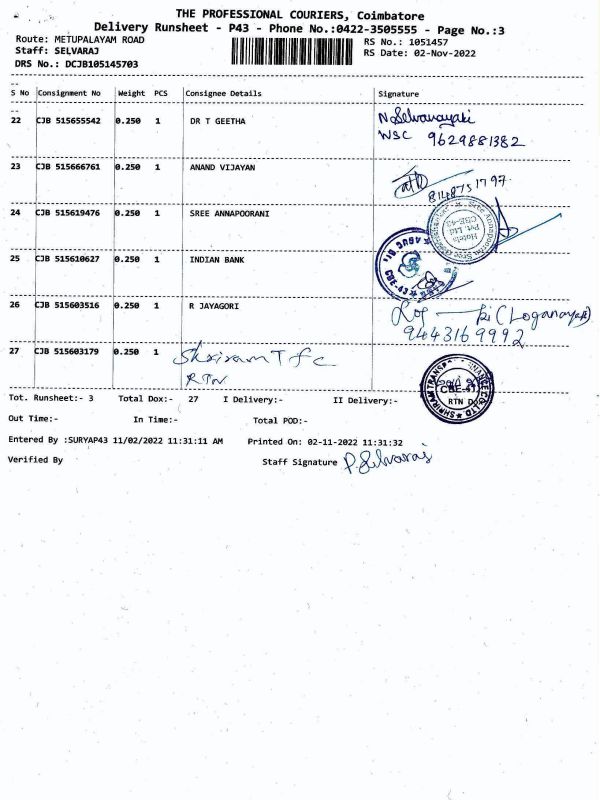 THE PROFESSIONAL COURIERS, Coimbatore
Delivery Runsheet - P43 - Phone No.:0422-3505555 - Page No.:3
Route: METUPALAYAM ROAD
RS No.: 1051457
Staff: SELVARAJ
RS Date: 02-Nov-2022
DRS No.: DCJB105145703
S No Consignment No Weight PCS Consignee Details Signature
22 CJB 515655542 0.250 1 DR T GEETHA N.Selvanayaki
WSC 9629881382
23 CJB 515666761 0.250 1 ANAND VIJAYAN
8148751797
24 CJB 515619476 0.250 1 SREE ANNAPOORANI
Hotels
Pvt Ltd
CBE-43
25 CJB 515610627 0.250 1 INDIAN BANK
CBE-43
26 CJB 515603516 0.250 1 R JAYAGORI (Loganayaki)
9443169992
27 CJB 515603179 0.250 1 Shriram T f c
RTN
CBE-43
RTN
Tot. Runsheet:- 3 Total Dox:- 27 I Delivery:- II Delivery:-
Out Time:- In Time:- Total POD:-
Entered By :SURYAP43 11/02/2022 11:31:11 AM Printed On: 02-11-2022 11:31:32
Verified By Staff Signature P.Selvaraj